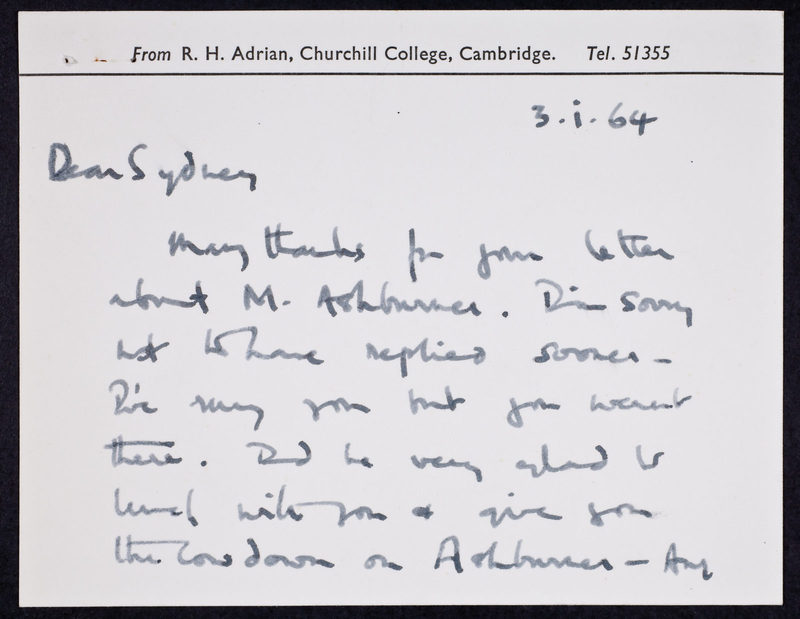 From R. H. Adrian, Churchill College, Cambridge. Tel. 51355
3.i.64
Dear Sydney
Many thanks for your letter
about M. Ashburner. I'm sorry
not to have replied sooner –
I've rung you but you weren't
there. I'd be very glad to
lunch with you & give you
the low down on Ashburner – Any